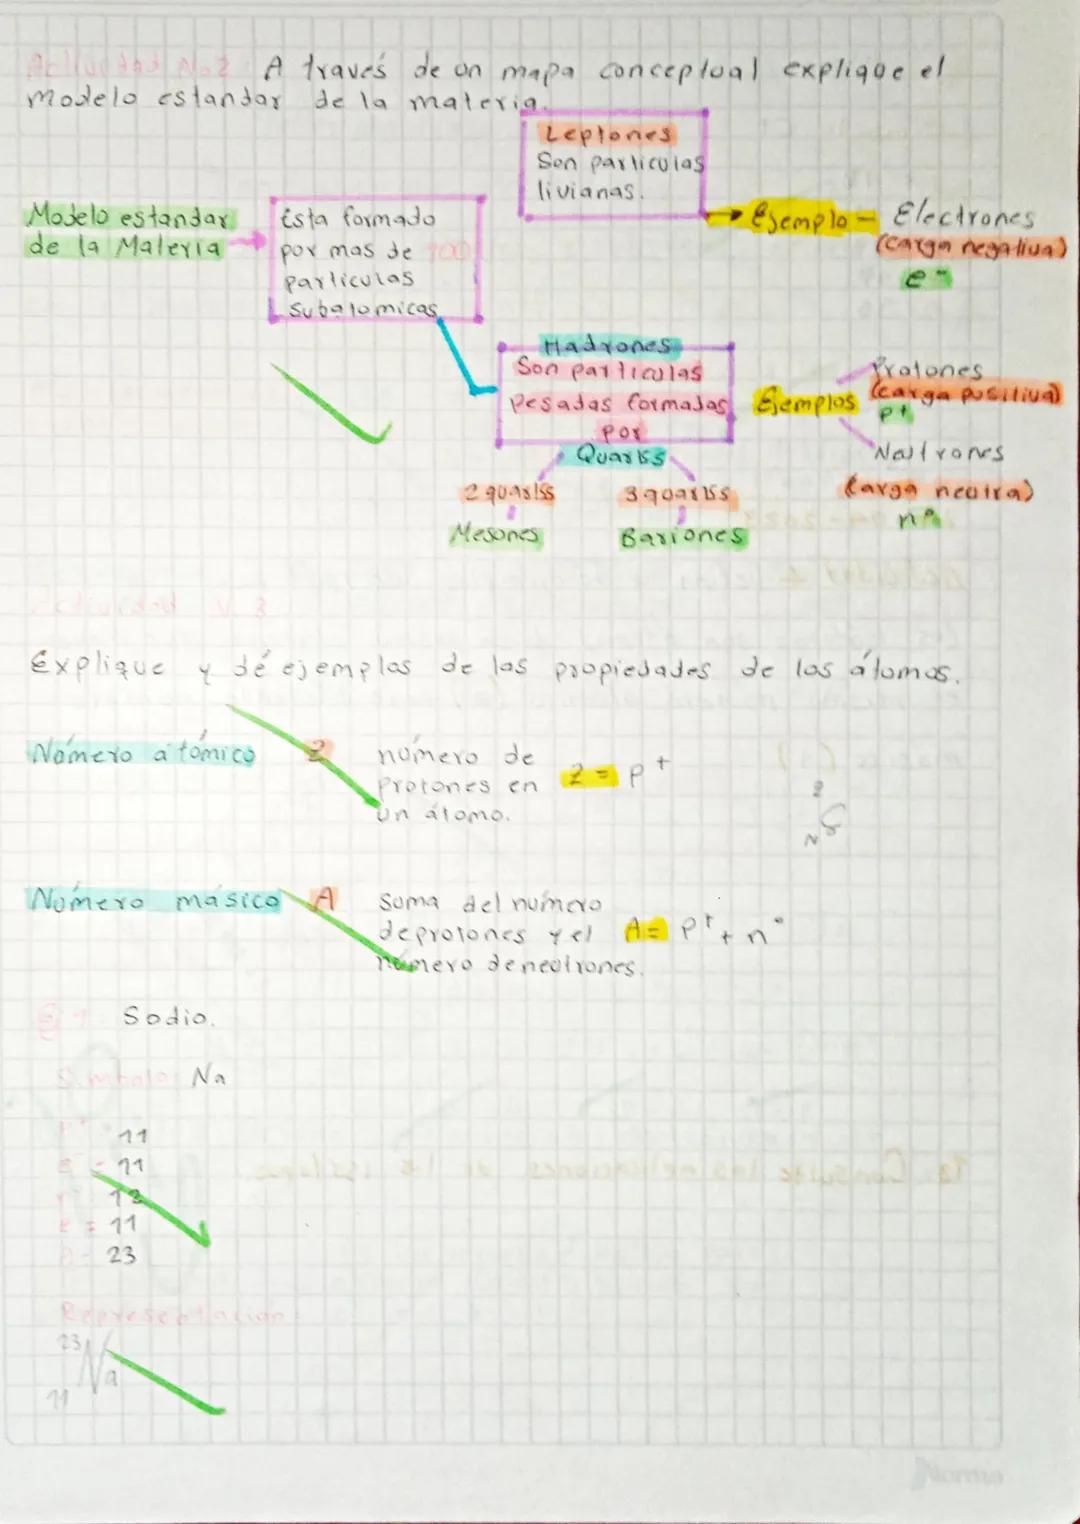 Actividad No.2 A través de un mapa conceptual explique el
modelo estandar de la materia.
Leptones
Son particulas
livianas.
Ejemplo - Electrones
(carga negativa)
e-
Modelo estandar
de la Materia
Esta formado
por mas de 400
particulas
Subatomicas
Hadrones
Son particulas
pesadas formadas
por
Quarks
2 quarks
3 quarks
Mesones
Bariones
Ejemplos
Protones
(carga positiva)
p+
Neutrones
(carga neutra)
n°
Actividad N 3
Explique y dé ejemplos de las propiedades de los átomos.
Número atómico Z número de
protones en
un átomo.
Z = p+
Número másico A Suma del número
de protones y el
número de neutrones.
A = p+ + n°
Ej 1 Sodio.
Símbolo: Na
11
11
12
= 11
A = 23
Representación:
23
Na
11
Norma